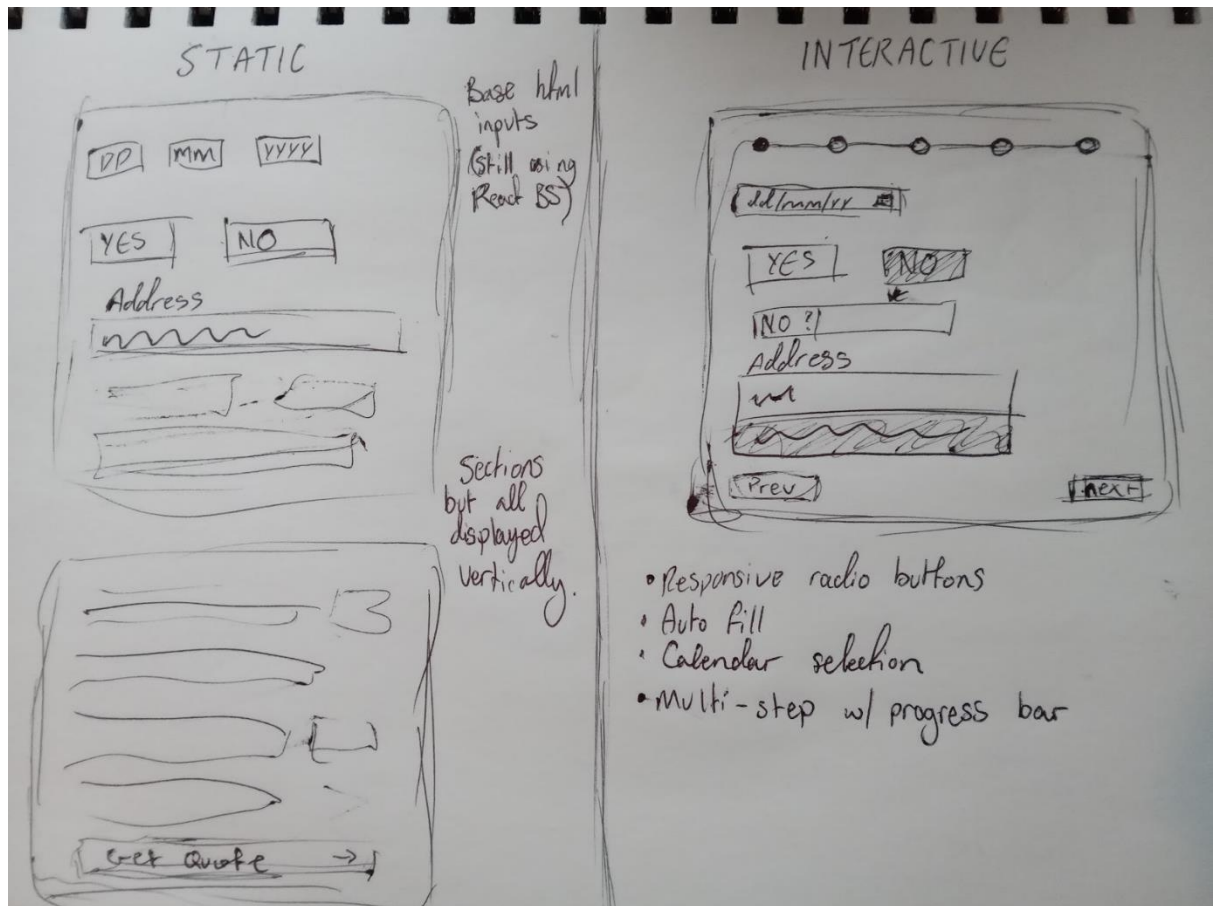 STATIC
DD MM YYYY
YES NO
Address
Get Quote →
Base html
inputs
(still using
React BS)
Sections
but all
displayed
vertically.
INTERACTIVE
dd/mm/yy
YES NO
NO ?
Address
Prev next
• Responsive radio buttons
• Auto fill
• Calendar selection
• Multi-step w/ progress bar